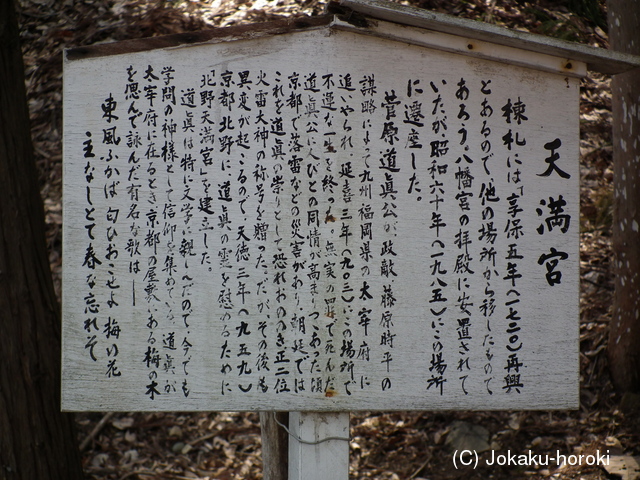 天満宮
棟札には「享保五年(一七二〇)再興
とあるので、他の場所から移したもので
あろう。八幡宮の拝殿に安置されて
いたが昭和六十年(一九八五)にこの場所
に遷座した。
菅原道真公が、政敵 藤原時平の
謀略によって九州福岡県の太宰府に
追いやられ、延喜三年(九〇三)にこの場所で
不運な一生を終った。無実の罪で死んだ
道真公に人びとの同情が高まりつつあった頃
京都で落雷などの災害があり、朝廷では
これを道真の祟りとして恐れおののき正二位
火雷大神の称号を贈った。だが、その後も
異変が起こるので、天徳三年(九五九)
京都北野に、道真の霊を慰めるために
「北野天満宮」を建立した。
道真は特に文学に親しんだので、今でも
学問の神様として信仰を集めている。道真が
太宰府に在るとき京都の屋敷にある梅の木
を偲んで詠んだ有名な歌は──
東風ふかば 匂ひおこせよ 梅の花
主なしとて春な忘れそ
(C) Jokaku-horoki